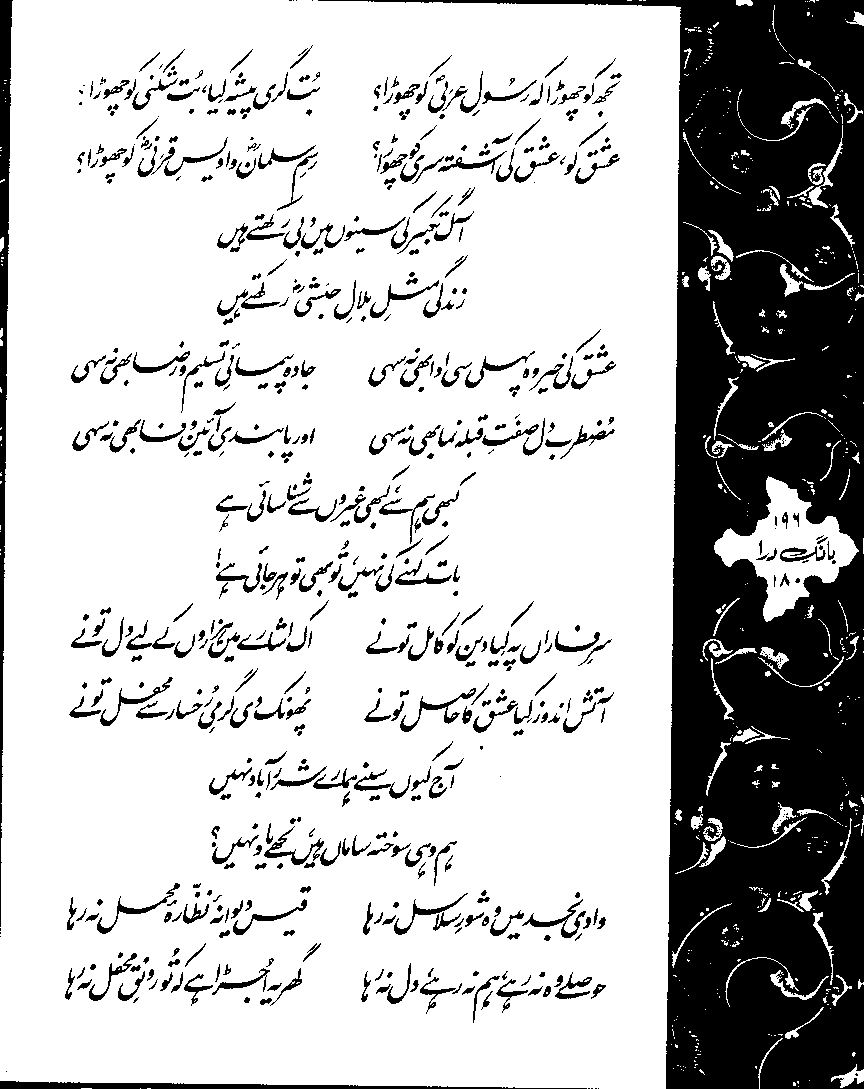 تجھ کو چھوڑا کہ رسُولِ عربیؐ کو چھوڑا؟ بُت گری پیشہ کیا، بُت شکنی کو چھوڑا؟
عشق کو، عشق کی آشفتہ سری کو چھوڑا؟ رسمِ سلمانؓ و اویسِ قرنیؓ کو چھوڑا؟
آگ تکبیر کی سینوں میں دبی رکھتے ہیں
زندگی مثلِ بلالِ حبَشیؓ رکھتے ہیں
عشق کی خیر وہ پہلی سی ادا بھی نہ سہی جادہ پیمائیِ تسلیم و رضا بھی نہ سہی
مُضطرب دل صفَتِ قبلہ نما بھی نہ سہی اور پابندیِ آئینِ وفا بھی نہ سہی
کبھی ہم سے، کبھی غیروں سے شناسائی ہے
بات کہنے کی نہیں، تُو بھی تو ہرجائی ہے!
سرِ فاراں پہ کیا دین کو کامل تو نے اک اشارے میں ہزاروں کے لیے دل تو نے
آتش اندوز کیا عشق کا حاصل تو نے پھُونک دی گرمیِ رُخسار سے محفل تو نے
آج کیوں سینے ہمارے شرر آباد نہیں
ہم وہی سوختہ ساماں ہیں، تجھے یاد نہیں؟
وادیِ نجد میں وہ شورِ سلاسل نہ رہا قیس دیوانۂ نظّارۂ محمل نہ رہا
حوصلے وہ نہ رہے، ہم نہ رہے، دل نہ رہا گھر یہ اُجڑا ہے کہ تُو رونقِ محفل نہ رہا
۱۹۶
بانگِ درا
۱۸۰